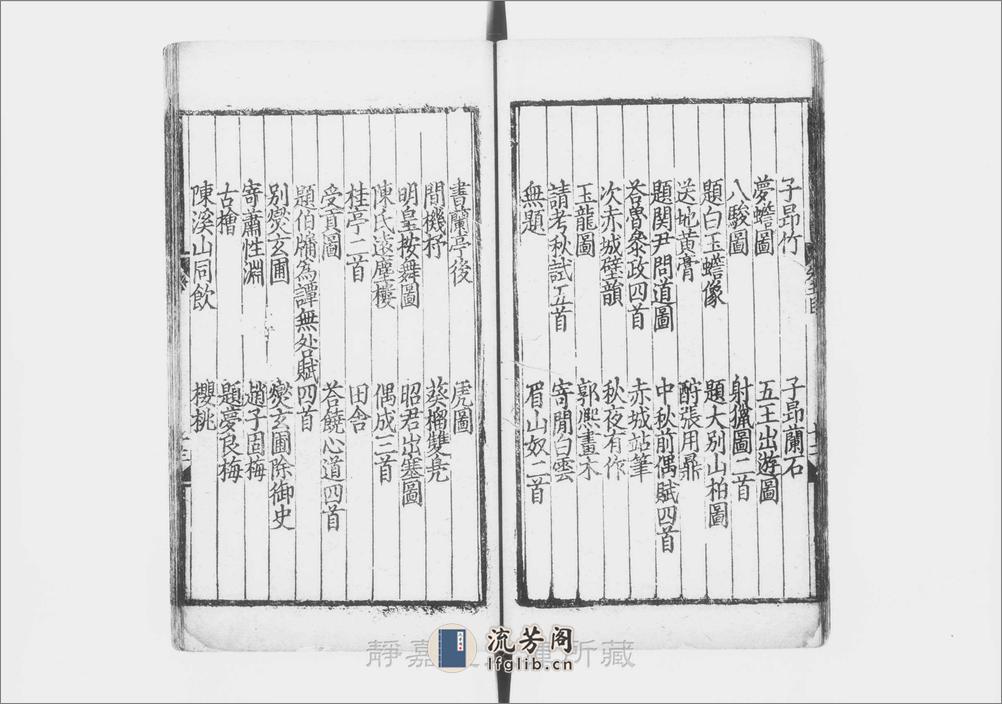 子昂竹　子昂蘭石
夢蟾圖　五王出遊圖
八駿圖　射獵圖二首
題白玉蟾像　題大别山柏圖
送地黄膏　酧張用鼎
題関尹問道圖　中秋前偶賦四首
荅曾叅政四首　赤城站筆
次赤城壁韻　秋夜有作
玉龍圖　郭熈畫木
請考秋試五首　寄閒白雲
無題　眉山奴二首
書蘭亭後　虎圖
間機杼　葵榴雙凫
明皇按舞圖　昭君出塞圖
陳氏遠塵樓　偶成三首
桂亭二首　田舎
受貢圖　荅饒心道四首
題伯牗為譚無处賦四首
别爕玄圃　爕玄圃除御史
寄蕭性淵　趙子固梅
古檜　題夢良梅
陳溪山同飲　櫻桃
靜嘉 所藏
流芳阁
lfglib.cn